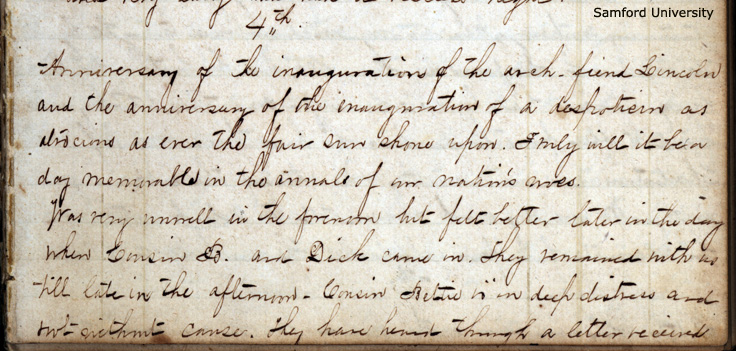 Samford University
and very
night.
4"th.
Anniversary of the inauguration of the arch-fiend Lincoln
and the anniversary of the inauguration of a despotism as
atrocious as ever the fair sun shone upon. Truly will it be a
day memorable in the annals of our nation's woes.
Was very unwell in the forenoon but felt better later in the day
when Cousin B. and Dick came in. They remained with us
till late in the afternoon - Cousin Bettie is in deep distress and
not without cause. They have heard through a letter received